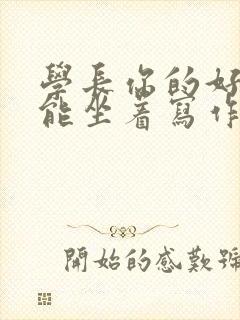 學長你的好
能坐着寫作
開始的感歎號